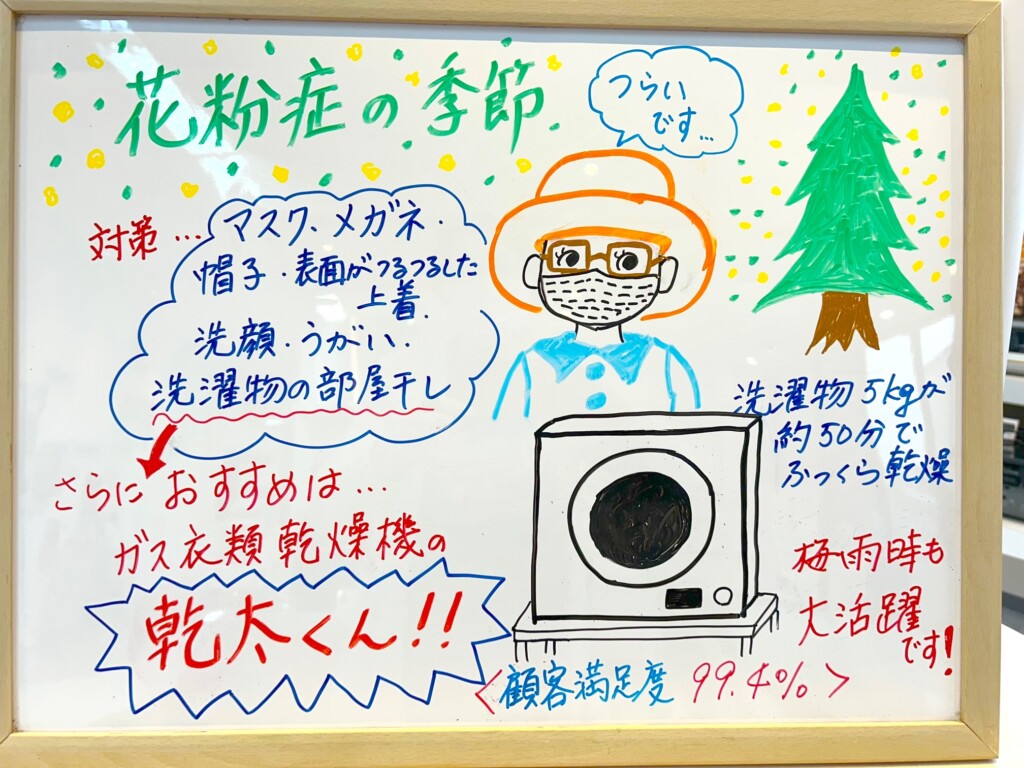 花粉症の季節.
つらい
です…
対策…
マスク、メガネ・
帽子・表面がつるつるした
上着.
洗顔・うがい・
洗濯物の部屋干し
さらにおすすめは…
ガス衣類乾燥機の
乾太くん!!
洗濯物5kgが
約50分で
ふっくら乾燥
梅雨時も
大活躍
です!
<顧客満足度 99.4%>